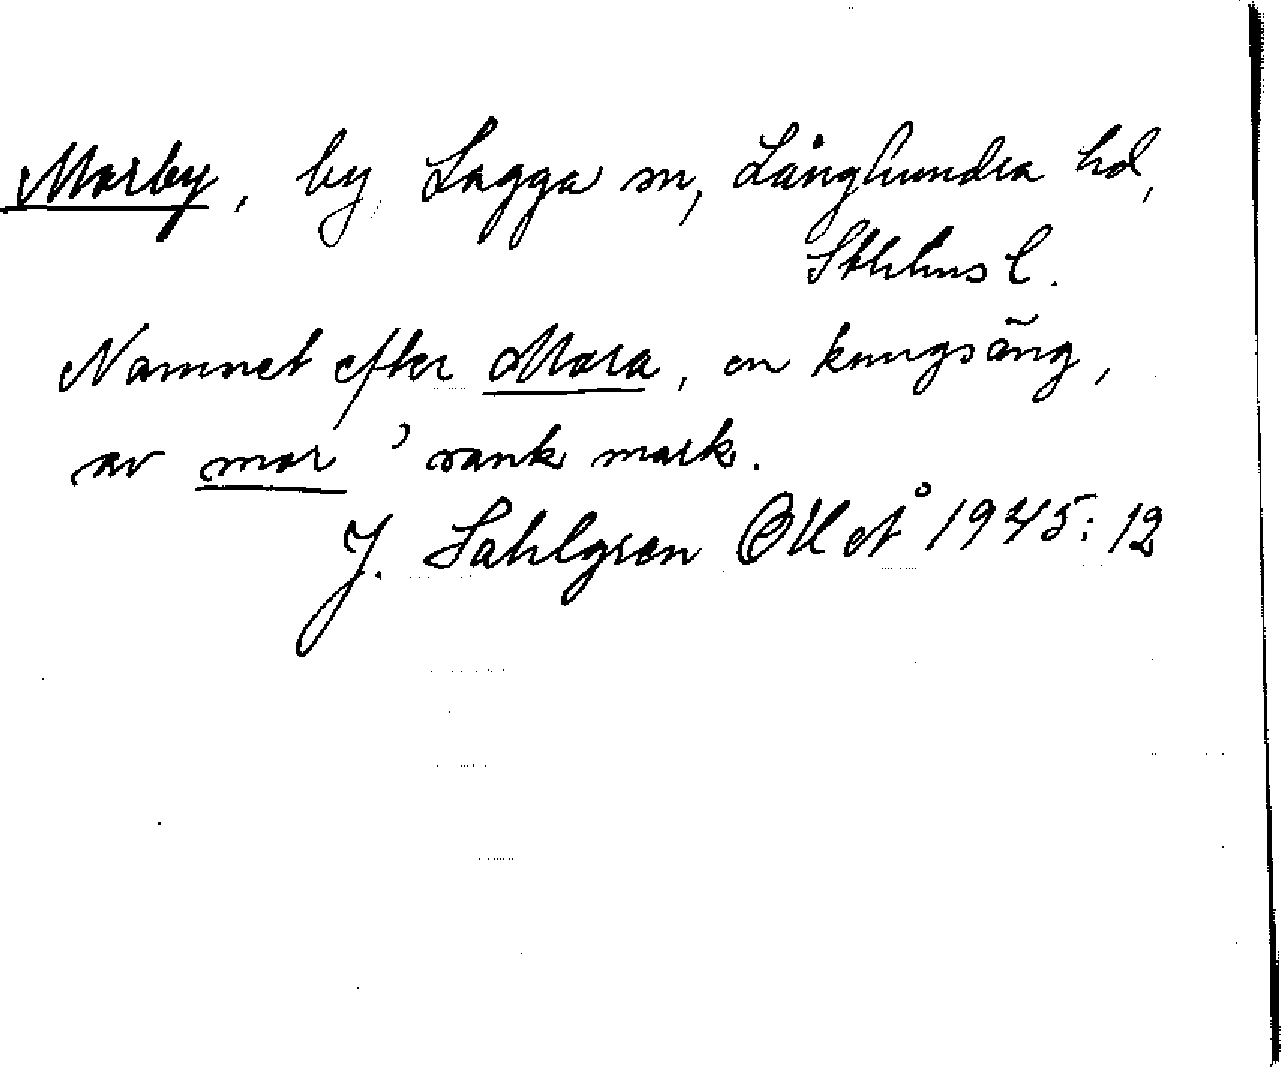 Morby, by, Lagga sn, Långhundra hd,
Sthlms l.
Namnet efter Mora, en kungsäng,
av mor ' vank mark.
J. Sahlgren 1945:12